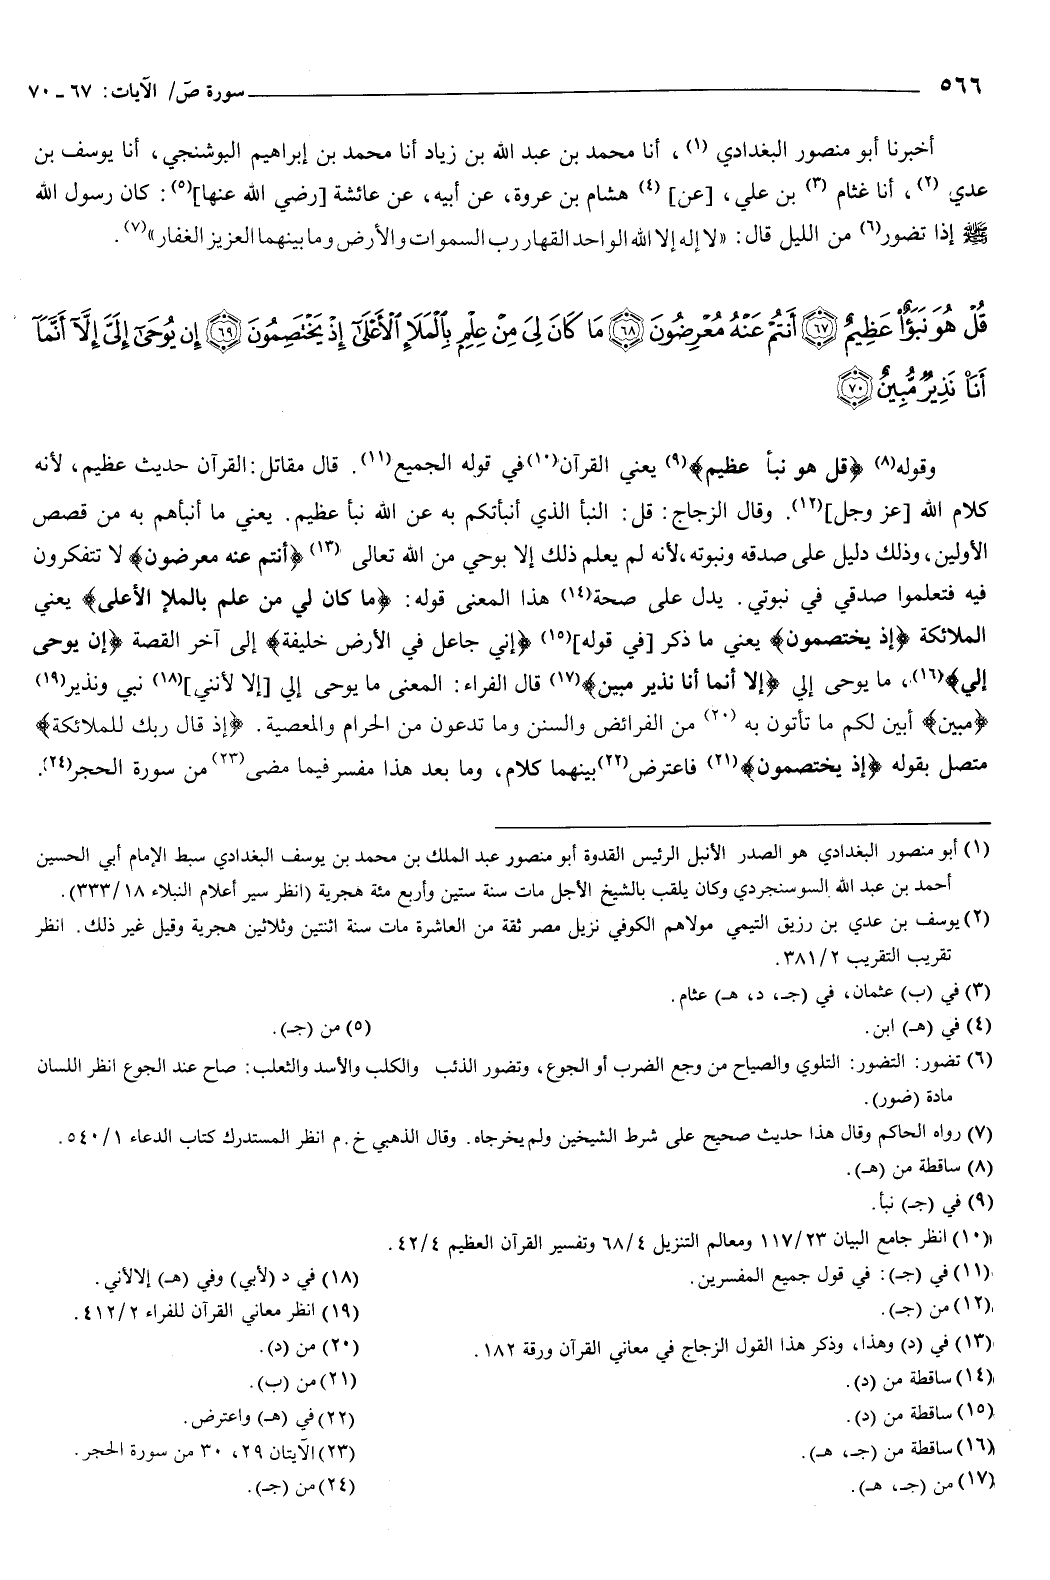 ٥٦٦ سورة صۤ/ الآيات: ٦٧ ـ ٧٠
أخبرنا أبو منصور البغدادي (١)، أنا محمد بن عبد الله بن زياد أنا محمد بن إبراهيم البوشنجي، أنا يوسف بن
عدي (٢)، أنا غثام (٣) بن علي، [عن] (٤) هشام بن عروة، عن أبيه، عن عائشة [رضي الله عنها](٥): كان رسول الله
ﷺ إذا تضور(٦) من الليل قال: «لا إله إلا الله الواحد القهار رب السموات والأرض وما بينهما العزيز الغفار»(٧).
قُلْ هُوَ نَبَؤٌاْ عَظِيمٌ ﴿٦٧﴾ أَنتُمْ عَنْهُ مُعْرِضُونَ ﴿٦٨﴾ مَا كَانَ لِيَ مِنْ عِلْمٍ بِٱلْمَلَإِ ٱلْأَعْلَىٰٓ إِذْ يَخْتَصِمُونَ ﴿٦٩﴾ إِن يُوحَىٰٓ إِلَيَّ إِلَّآ أَنَّمَآ
أَنَا۠ نَذِيرٌ مُّبِينٌ ﴿٧٠﴾
وقوله(٨) ﴿قل هو نبأ عظيم﴾(٩) يعني القرآن(١٠) في قوله الجميع(١١). قال مقاتل: القرآن حديث عظيم، لأنه
كلام الله [عز وجل](١٢). وقال الزجاج: قل: النبأ الذي أنبأتكم به عن الله نبأ عظيم. يعني ما أنبأهم به من قصص
الأولين، وذلك دليل على صدقه ونبوته، لأنه لم يعلم ذلك إلا بوحي من الله تعالى (١٣) ﴿أنتم عنه معرضون﴾ لا تتفكرون
فيه فتعلموا صدقي في نبوتي. يدل على صحة(١٤) هذا المعنى قوله: ﴿ما كان لي من علم بالملإ الأعلى﴾ يعني
الملائكة ﴿إذ يختصمون﴾ يعني ما ذكر [في قوله](١٥) ﴿إني جاعل في الأرض خليفة﴾ إلى آخر القصة ﴿إن يوحى
إلي﴾(١٦)، ما يوحى إلي ﴿إلا أنما أنا نذير مبين﴾(١٧) قال الفراء: المعنى ما يوحى إلي [إلا لأنني](١٨) نبي ونذير(١٩)
﴿مبين﴾ أبين لكم ما تأتون به (٢٠) من الفرائض والسنن وما تدعون من الحرام والمعصية. ﴿إذ قال ربك للملائكة﴾
متصل بقوله ﴿إذ يختصمون﴾(٢١) فاعترض(٢٢) بينهما كلام، وما بعد هذا مفسر فيما مضى(٢٣) من سورة الحجر(٢٤).
(١) أبو منصور البغدادي هو الصدر الأنبل الرئيس القدوة أبو منصور عبد الملك بن محمد بن يوسف البغدادي سبط الإمام أبي الحسين
أحمد بن عبد الله السوسنجردي وكان يلقب بالشيخ الأجل مات سنة ستين وأربع مئة هجرية (انظر سير أعلام النبلاء ١٨/ ٣٣٣).
(٢) يوسف بن عدي بن رزيق التيمي مولاهم الكوفي نزيل مصر ثقة من العاشرة مات سنة اثنتين وثلاثين هجرية وقيل غير ذلك. انظر
تقريب التقريب ٢/ ٣٨١.
(٣) في (ب) عثمان، في (جـ، د، هـ) عثام.
(٤) في (هـ) ابن. (٥) من (جـ).
(٦) تضور: التضور: التلوي والصياح من وجع الضرب أو الجوع، وتضور الذئب والكلب والأسد والثعلب: صاح عند الجوع انظر اللسان
مادة (ضور).
(٧) رواه الحاكم وقال هذا حديث صحيح على شرط الشيخين ولم يخرجاه. وقال الذهبي خ.م انظر المستدرك كتاب الدعاء ١/ ٥٤٠.
(٨) ساقطة من (هـ).
(٩) في (جـ) نبأ.
(١٠) انظر جامع البيان ٢٣/ ١١٧ ومعالم التنزيل ٤/ ٦٨ وتفسير القرآن العظيم ٤/ ٤٢.
(١١) في (جـ): في قول جميع المفسرين. (١٨) في د (لأبي) وفي (هـ) إلالأني.
(١٢) من (جـ). (١٩) انظر معاني القرآن للفراء ٢/ ٤١٢.
(١٣) في (د) وهذا، وذكر هذا القول الزجاج في معاني القرآن ورقة ١٨٢. (٢٠) من (د).
(١٤) ساقطة من (د). (٢١) من (ب).
(١٥) ساقطة من (د). (٢٢) في (هـ) واعترض.
(١٦) ساقطة من (جـ، هـ). (٢٣) الآيتان ٢٩، ٣٠ من سورة الحجر.
(١٧) من (جـ، هـ). (٢٤) من (جـ).